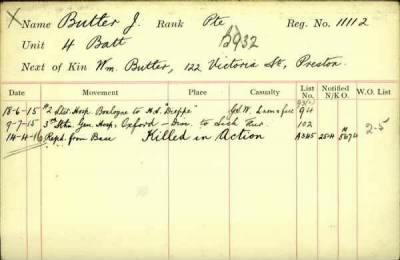 X Name Butter J. Rank Pte Reg. No. 11112
Unit 4 Batt 2932
Next of Kin Wm. Butter, 122 Victoria St, Preston.
Date Movement Place Casualty List No. Notified N/K O. W.O. List
18-6-15 2 Stat. Hosp. Boulogne to H.S. "Dieppe" W. 94
9-7-15 3rd Sthn. Gen. Hosp. Oxford - Disc. to Sick Fur. 102
14-4-16 Repd. from Base Killed in Action A345 25-4 5674 2-5